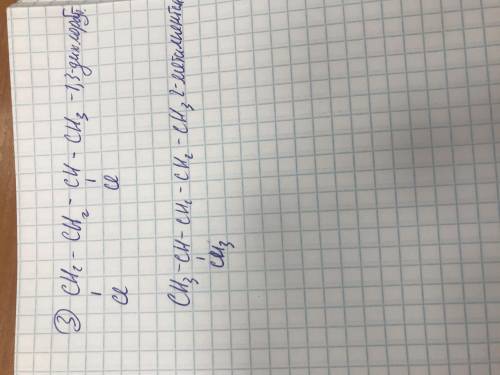 ③ CH₂ - CH₂ - CH - CH₃ - 1,3-дихлорбу
Cl Cl
CH₃ - CH - CH₂ - CH₂ - CH₃ 2-метилпентан
CH₃